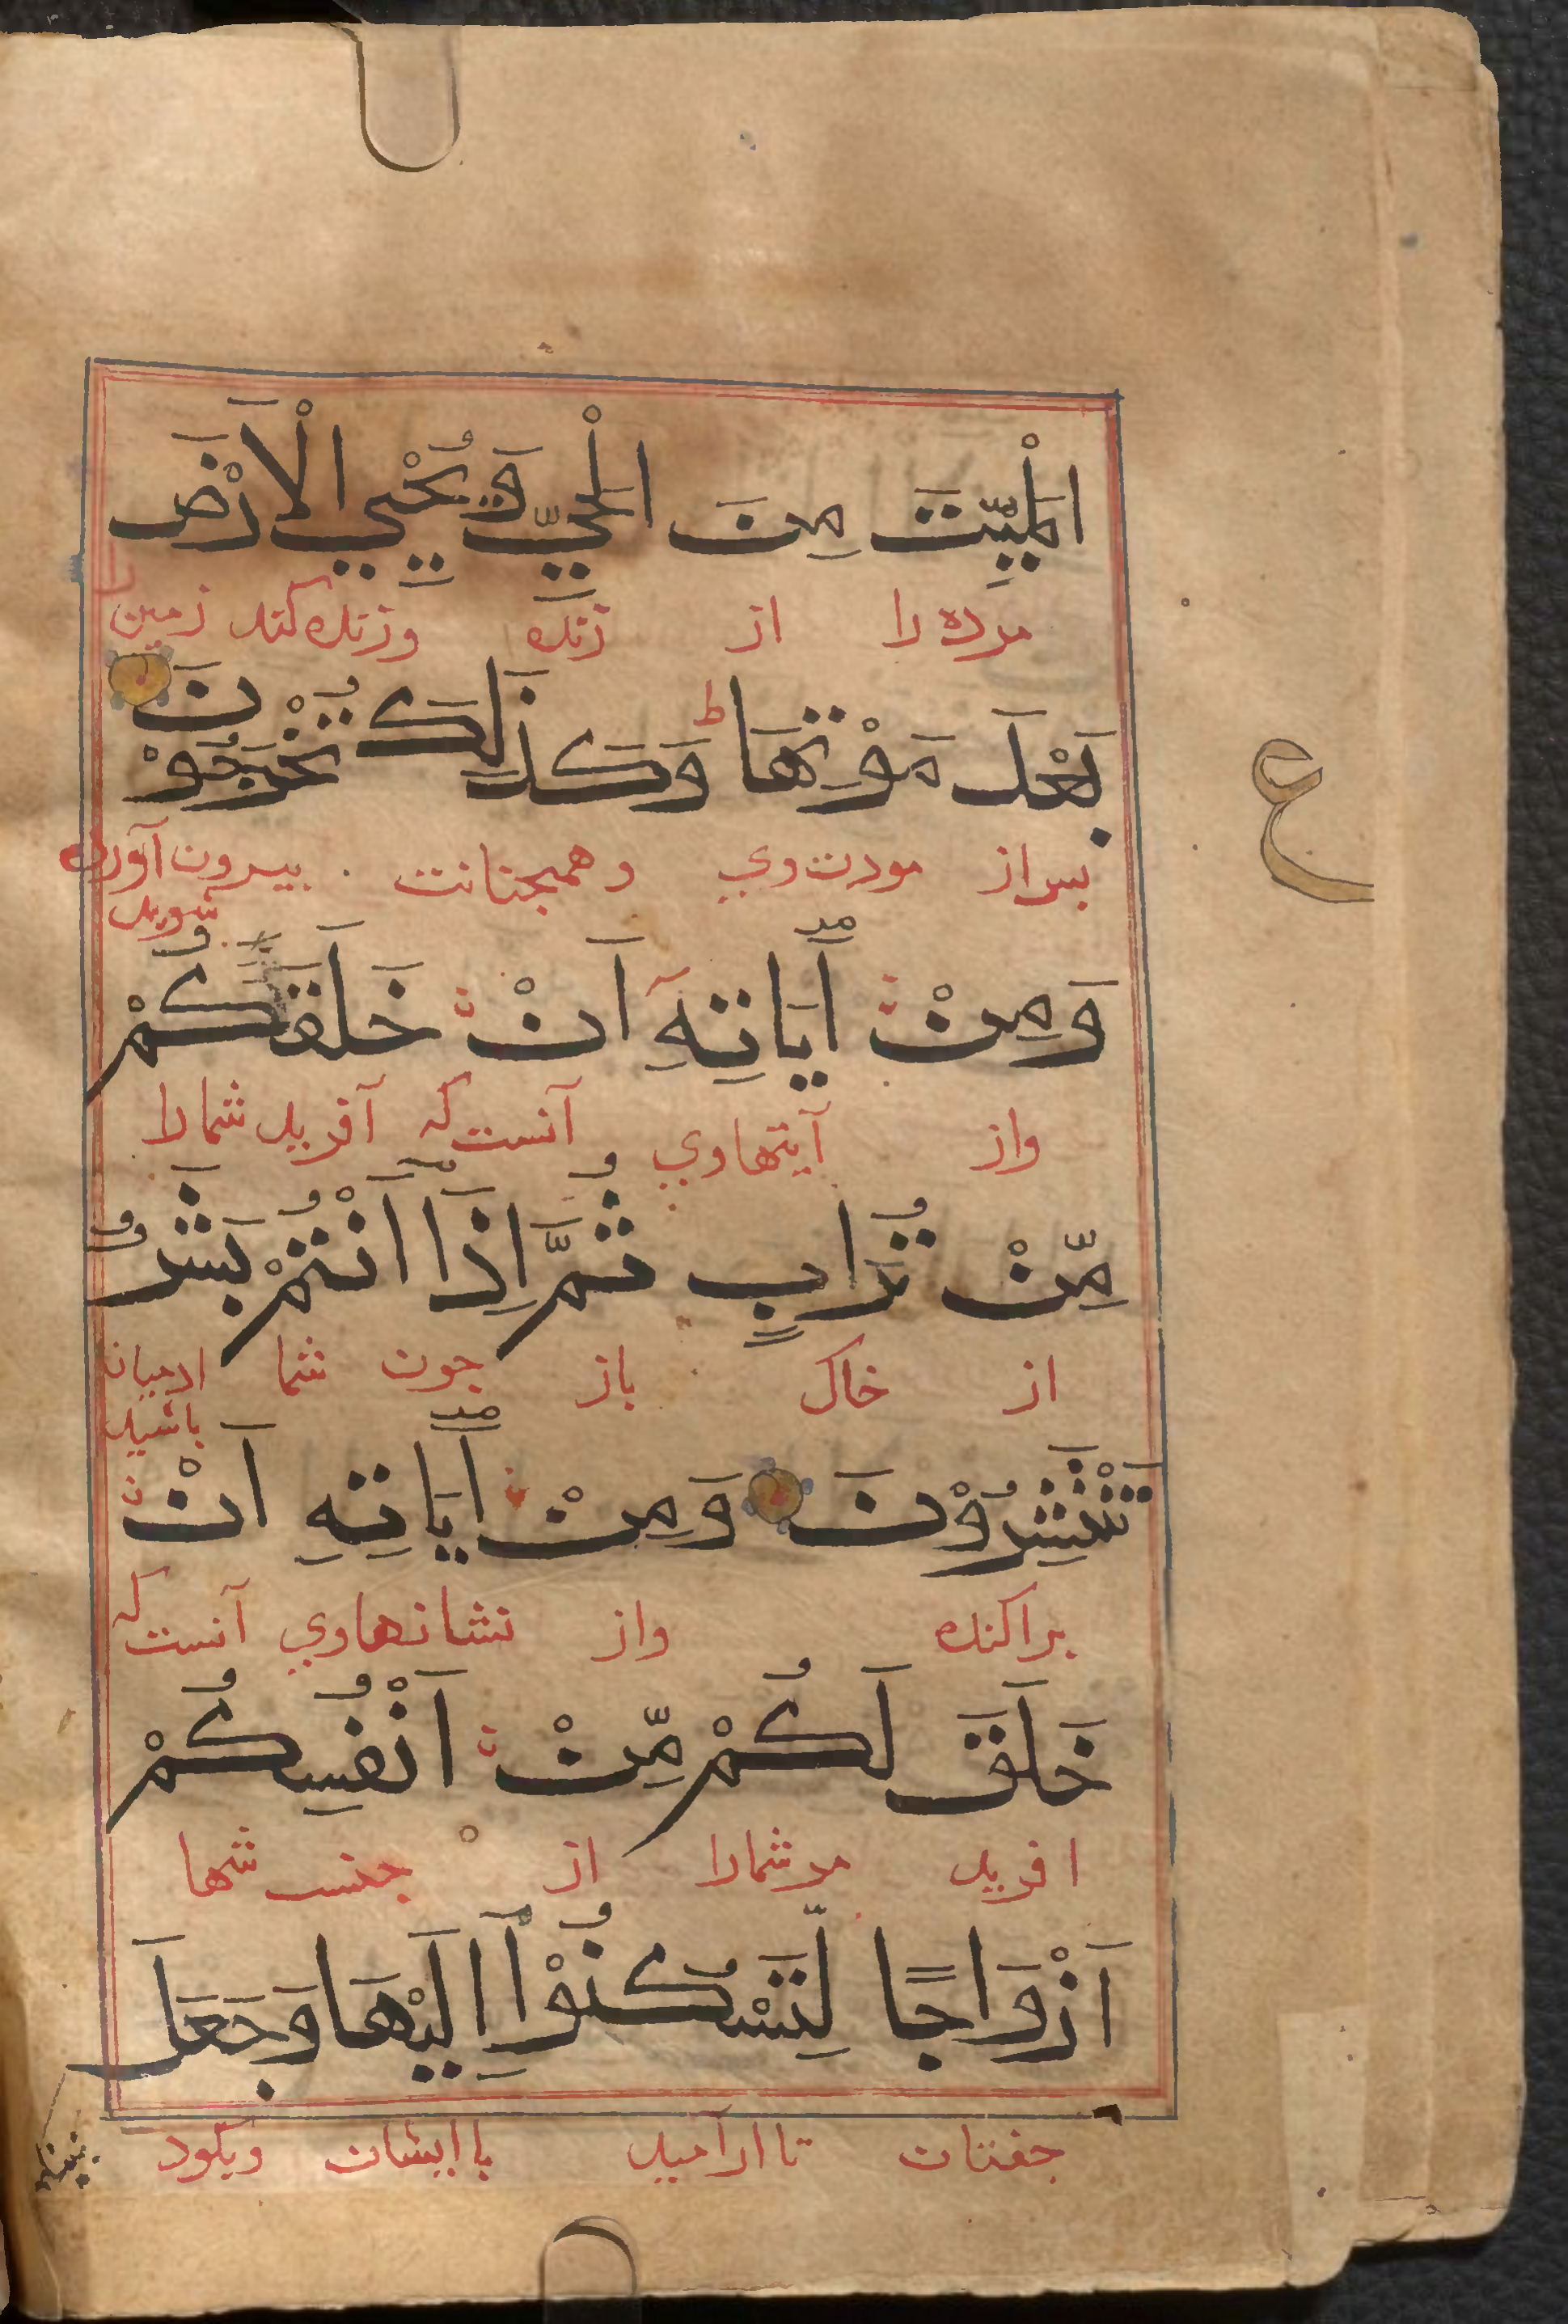 الْمَيِّتَ مِنَ الْحَيِّ وَيُحْيِي الْاَرْضَ
مرده را از زنده وزنده کند زمین را
بَعْدَ مَوْتِهَا ط وَكَذَلِكَ تُخْرَجُوْنَ
بس از مردن وي وهمجنانت بیرون آورده
شوید
وَمِنْ اٰيَاتِهٖ اَنْ خَلَقَكُمْ
ع
واز آیتهاوي آنست که آفرید شمارا
مِّنْ تُرَابٍ ثُمَّ اِذَا اَنْتُمْ بَشَرٌ
از خاک باز جون شما ادمیان
باشید
تَنْتَشِرُوْنَ وَمِنْ اٰيَاتِهِ اَنْ
براکنده واز نشانهاوي آنست که
خَلَقَ لَكُمْ مِّنْ اَنْفُسِكُمْ
افرید مرشمارا از جنس شما
اَزْوَاجًا لِّتَسْكُنُوْا اِلَيْهَا وَجَعَلَ
جفتان تا ارآمید با ایشان وبکرد